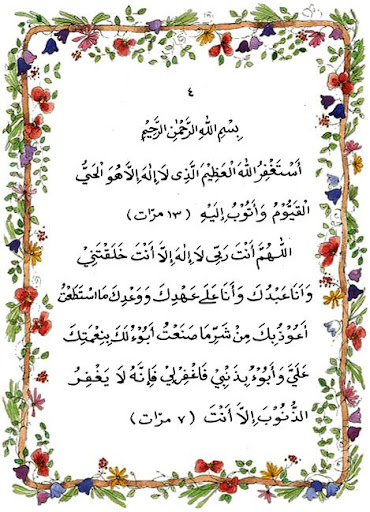 ٤
بِسْمِ اللهِ الرَّحْمٰنِ الرَّحِيْمِ
أَسْتَغْفِرُ اللهَ الْعَظِيْمَ الَّذِى لَا إِلٰهَ إِلَّا هُوَ الْحَيُّ
الْقَيُّوْمُ وَأَتُوْبُ إِلَيْهِ (١٣ مرّات)
اَللّٰهُمَّ أَنْتَ رَبِّى لَا إِلٰهَ إِلَّا أَنْتَ خَلَقْتَنِيْ
وَأَنَا عَبْدُكَ وَأَنَا عَلَى عَهْدِكَ وَوَعْدِكَ مَا اسْتَطَعْتُ
أَعُوْذُ بِكَ مِنْ شَرِّ مَا صَنَعْتُ أَبُوْءُ لَكَ بِنِعْمَتِكَ
عَلَيَّ وَأَبُوْءُ بِذَنْبِيْ فَاغْفِرْ لِيْ فَإِنَّهُ لَا يَغْفِرُ
الذُّنُوْبَ إِلَّا أَنْتَ (٧ مرّات)